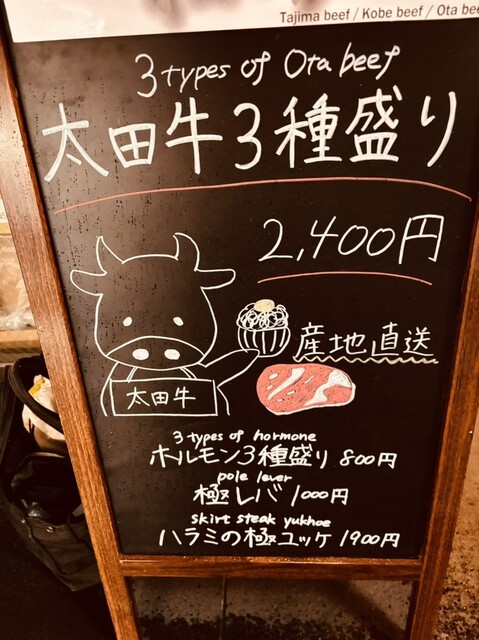 Tajima beef / Kobe beef / Ota bee
3 types of Ota beef
太田牛3種盛り
2,400円
産地直送
太田牛
3 types of hormone
ホルモン3種盛り 800円
pole lever
極レバ 1000円
skirt steak yukhoe
ハラミの極ユッケ 1900円